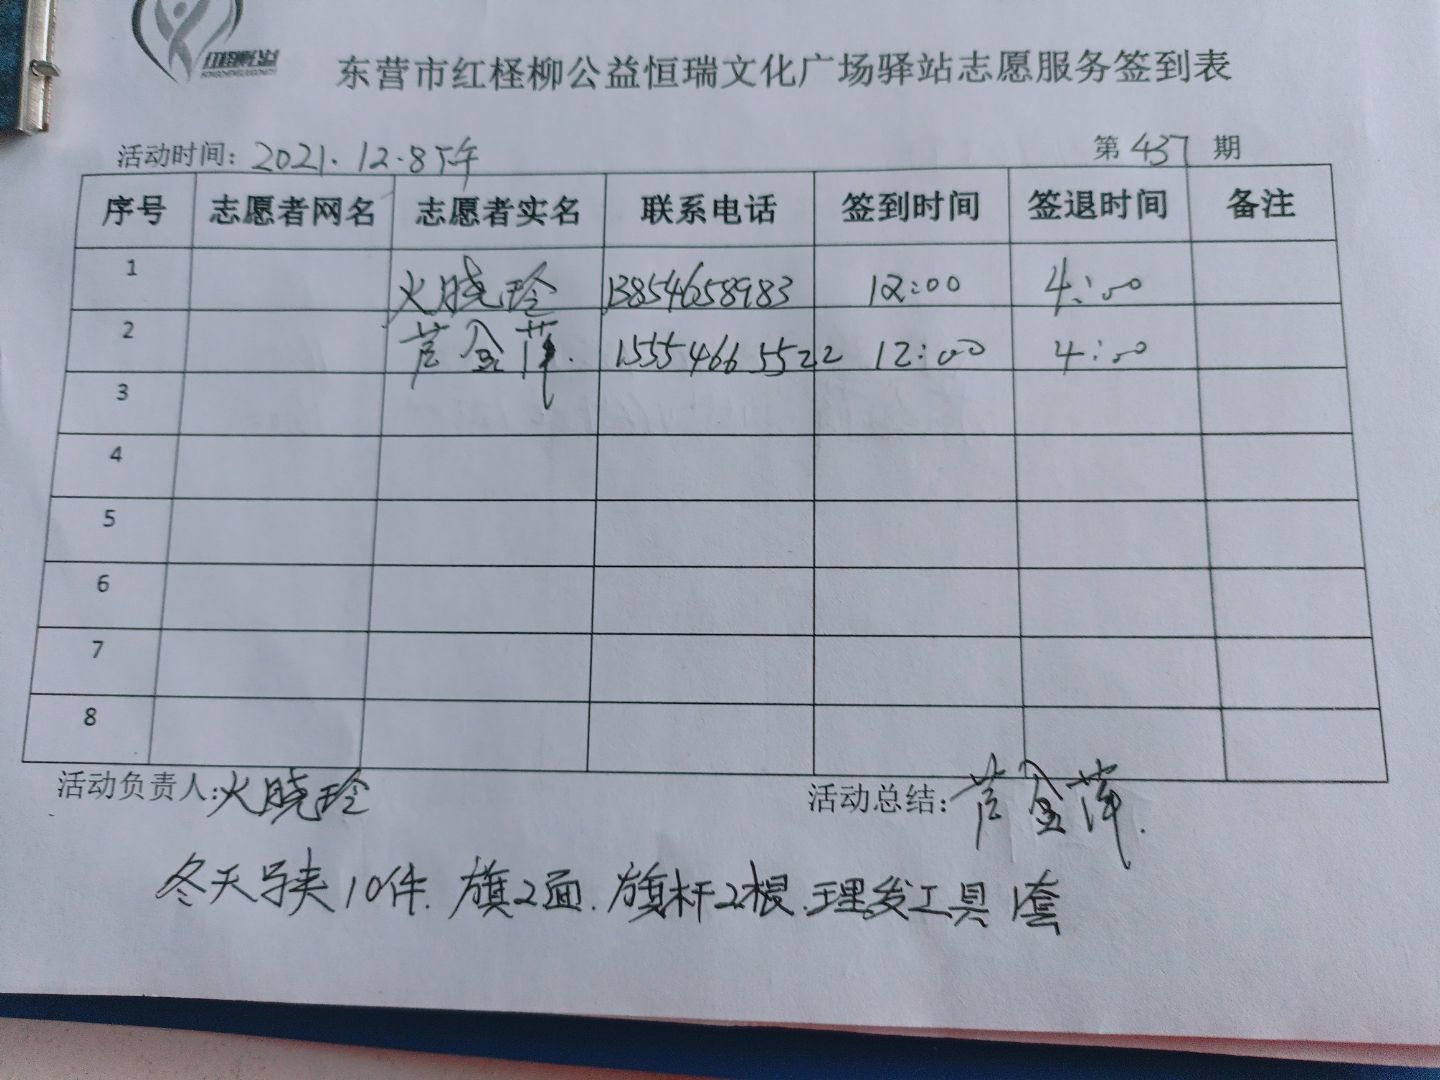 东营市红柽柳公益恒瑞文化广场驿站志愿服务签到表
活动时间：2021.12.8下午 第437期
序号 志愿者网名 志愿者实名 联系电话 签到时间 签退时间 备注
1 火晓玲 13854658983 12:00 4:00
2 芦金萍. 15554665522 12:00 4:00
3
4
5
6
7
8
活动负责人：火晓玲 活动总结：芦金萍.
冬天马夹10件.旗2面.旗杆2根.理发工具1套